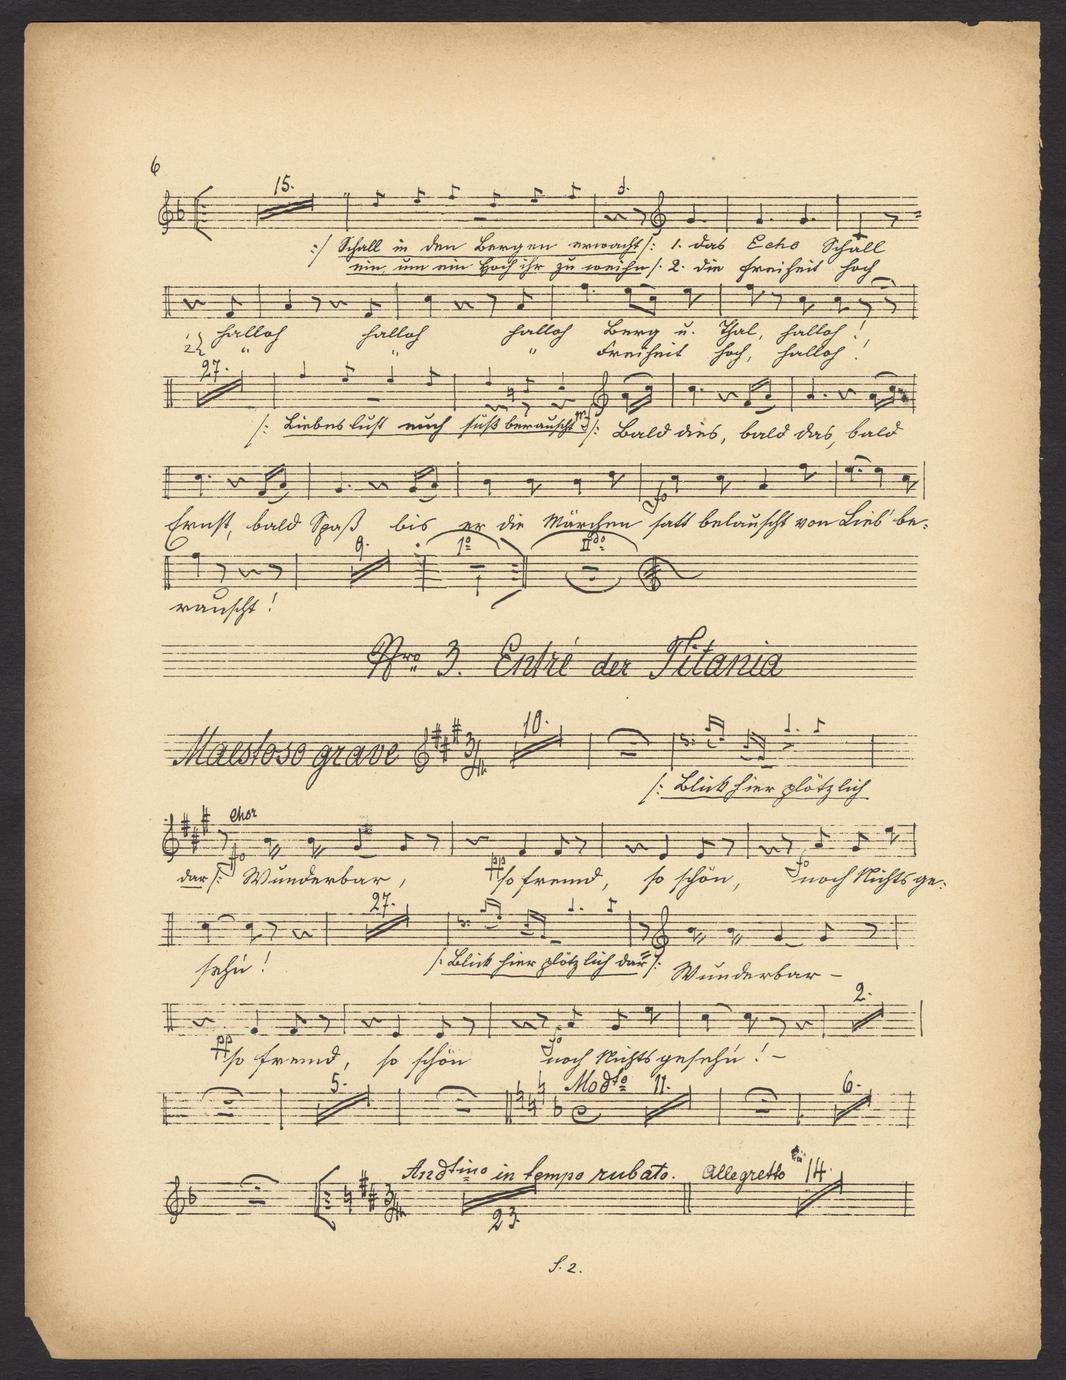 6
15.
:/ Schall in den Bergen erwacht /: 1. das Echo Schall
ein, um ein Hoch ihr zu weihn /: 2. die Freiheit hoch
halloh halloh halloh Berg u. Thal, halloh!
" " " Freiheit hoch, halloh!
27.
/: Liebeslust euch süß berauscht /: Bald dies, bald das, bald
Ernst, bald Spaß bis er die Märchen satt belauscht von Lieb' be-
9. 1º IIdo
rauscht!
Nro 3. Entré der Titania
Maestoso grave 3/4 10.
/: Blick hier plötzlich
Chor
dar /: fo Wunderbar, pp so fremd, so schön, fo noch Nichts ge-
27.
sehn! /: Blick hier plötzlich dar /: Wunderbar -
2.
pp so fremd, so schön fo noch Nichts gesehn! -
5. Modto 11. 6.
Andtino in tempo rubato. Allegretto 14.
3/4 23
S. 2.